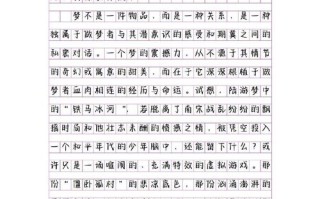 梦不是一件物品，而是一种关系，是一种
独属于做梦者与其潜意识的感受和期冀之间的
私密对话。一个梦的震撼力，从不于其情节
的奇幻或寓意的甜美，而在于它深深根植于做
梦者血肉相连的经历与命运。试想，陆游梦中
的“铁马冰河”，若脱离了南宋战乱纷飞的飘
摇时局和他壮志未酬的情感之情，被凭空投入
一个和平年代的少年脑中，还能留下什么？或
许只是一场喧闹的、充满特效的虚拟游戏。那
份“僵卧孤村”的悲凉底色，那份汹涌澎湃的